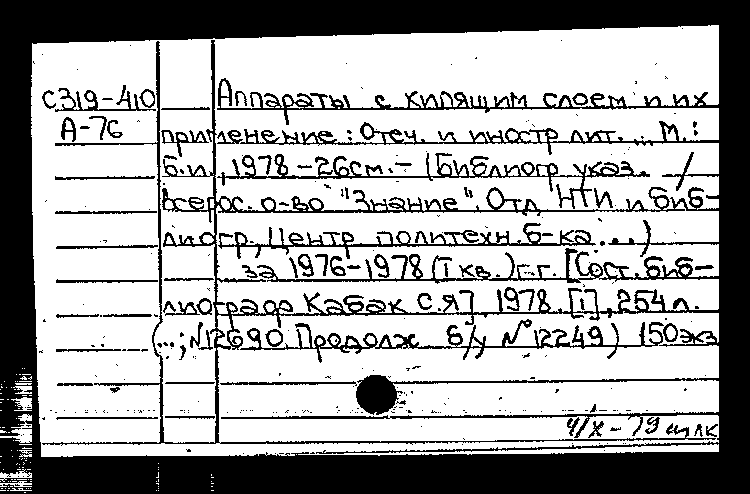 С319-410 Аппараты с кипящим слоем и их
А-76 применение: Отеч. и иностр лит. ... М.:
б.и., 1978 - 26см. - (Библиогр указ. /
Всерос. о-во "Знание". Отд НТИ и биб-
лиогр., Центр политехн. б-ка ...)
за 1976-1978 (I кв.) г.г. [Сост. биб-
лиограф Кабак С.Я]. 1978. [1], 254 л.
(...; №12690. Продолж б/у №12249) 150экз
4/X - 79